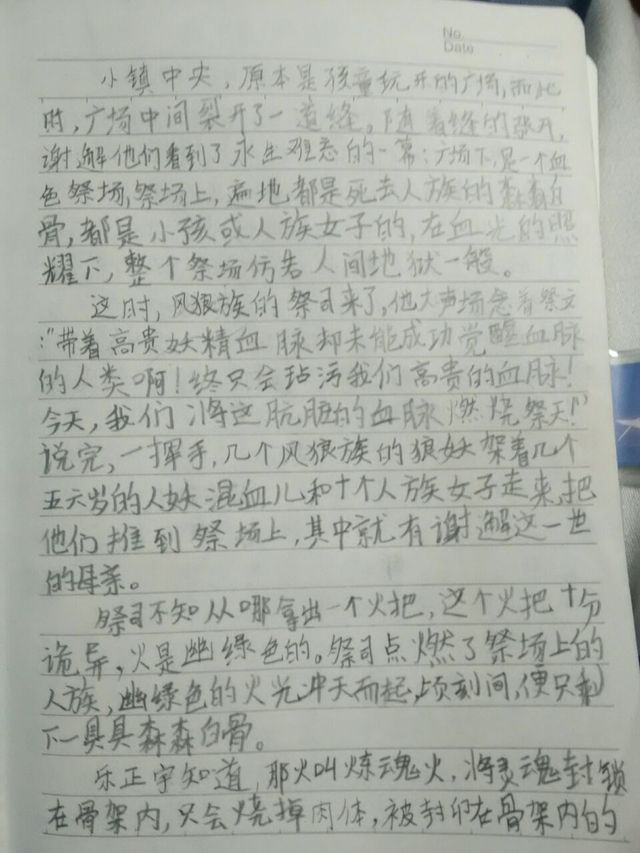 No.
Date
小镇中央,原本是孩童玩乐的广场,而此
时,广场中间裂开了一道缝。随着缝的张开,
谢解他们看到了永生难忘的一幕:广场下,是一个血
色祭场,祭场上,遍地都是死去人族的森森白
骨,都是小孩或人族女子的,在血光的照
耀下,整个祭场仿若人间地狱一般。
这时,风狼族的祭司来了,他大声场念着祭文
:"带着高贵妖精血脉却未能成功觉醒血脉
的人类啊!终只会玷污我们高贵的血脉!
今天,我们将这肮脏的血脉燃烧祭天!"
说完,一挥手,几个风狼族的狼妖架着几个
五六岁的人妖混血儿和十个人族女子走来,把
他们推到祭场上,其中就有谢解这一世
的母亲。
祭司不知从哪拿出一个火把,这个火把十分
诡异,火是幽绿色的。祭司点燃了祭场上的
人族,幽绿色的火光冲天而起,顷刻间,便只剩
下一具具森森白骨。
乐正宇知道,那火叫炼魂火,将灵魂封锁
在骨架内,只会烧掉肉体,被封印在骨架内的